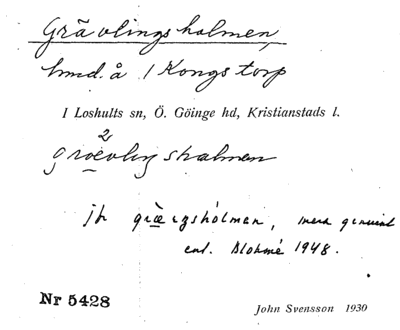 Grävlingsholmen,
hmd. å 1 Kongstorp
I Loshults sn, Ö. Göinge hd, Kristianstads l.
2
grævliŋshalmen
jfr græ̱vŋshòlman, mera genuint
enl. Blohmé 1948.
Nr 5428
John Svensson 1930